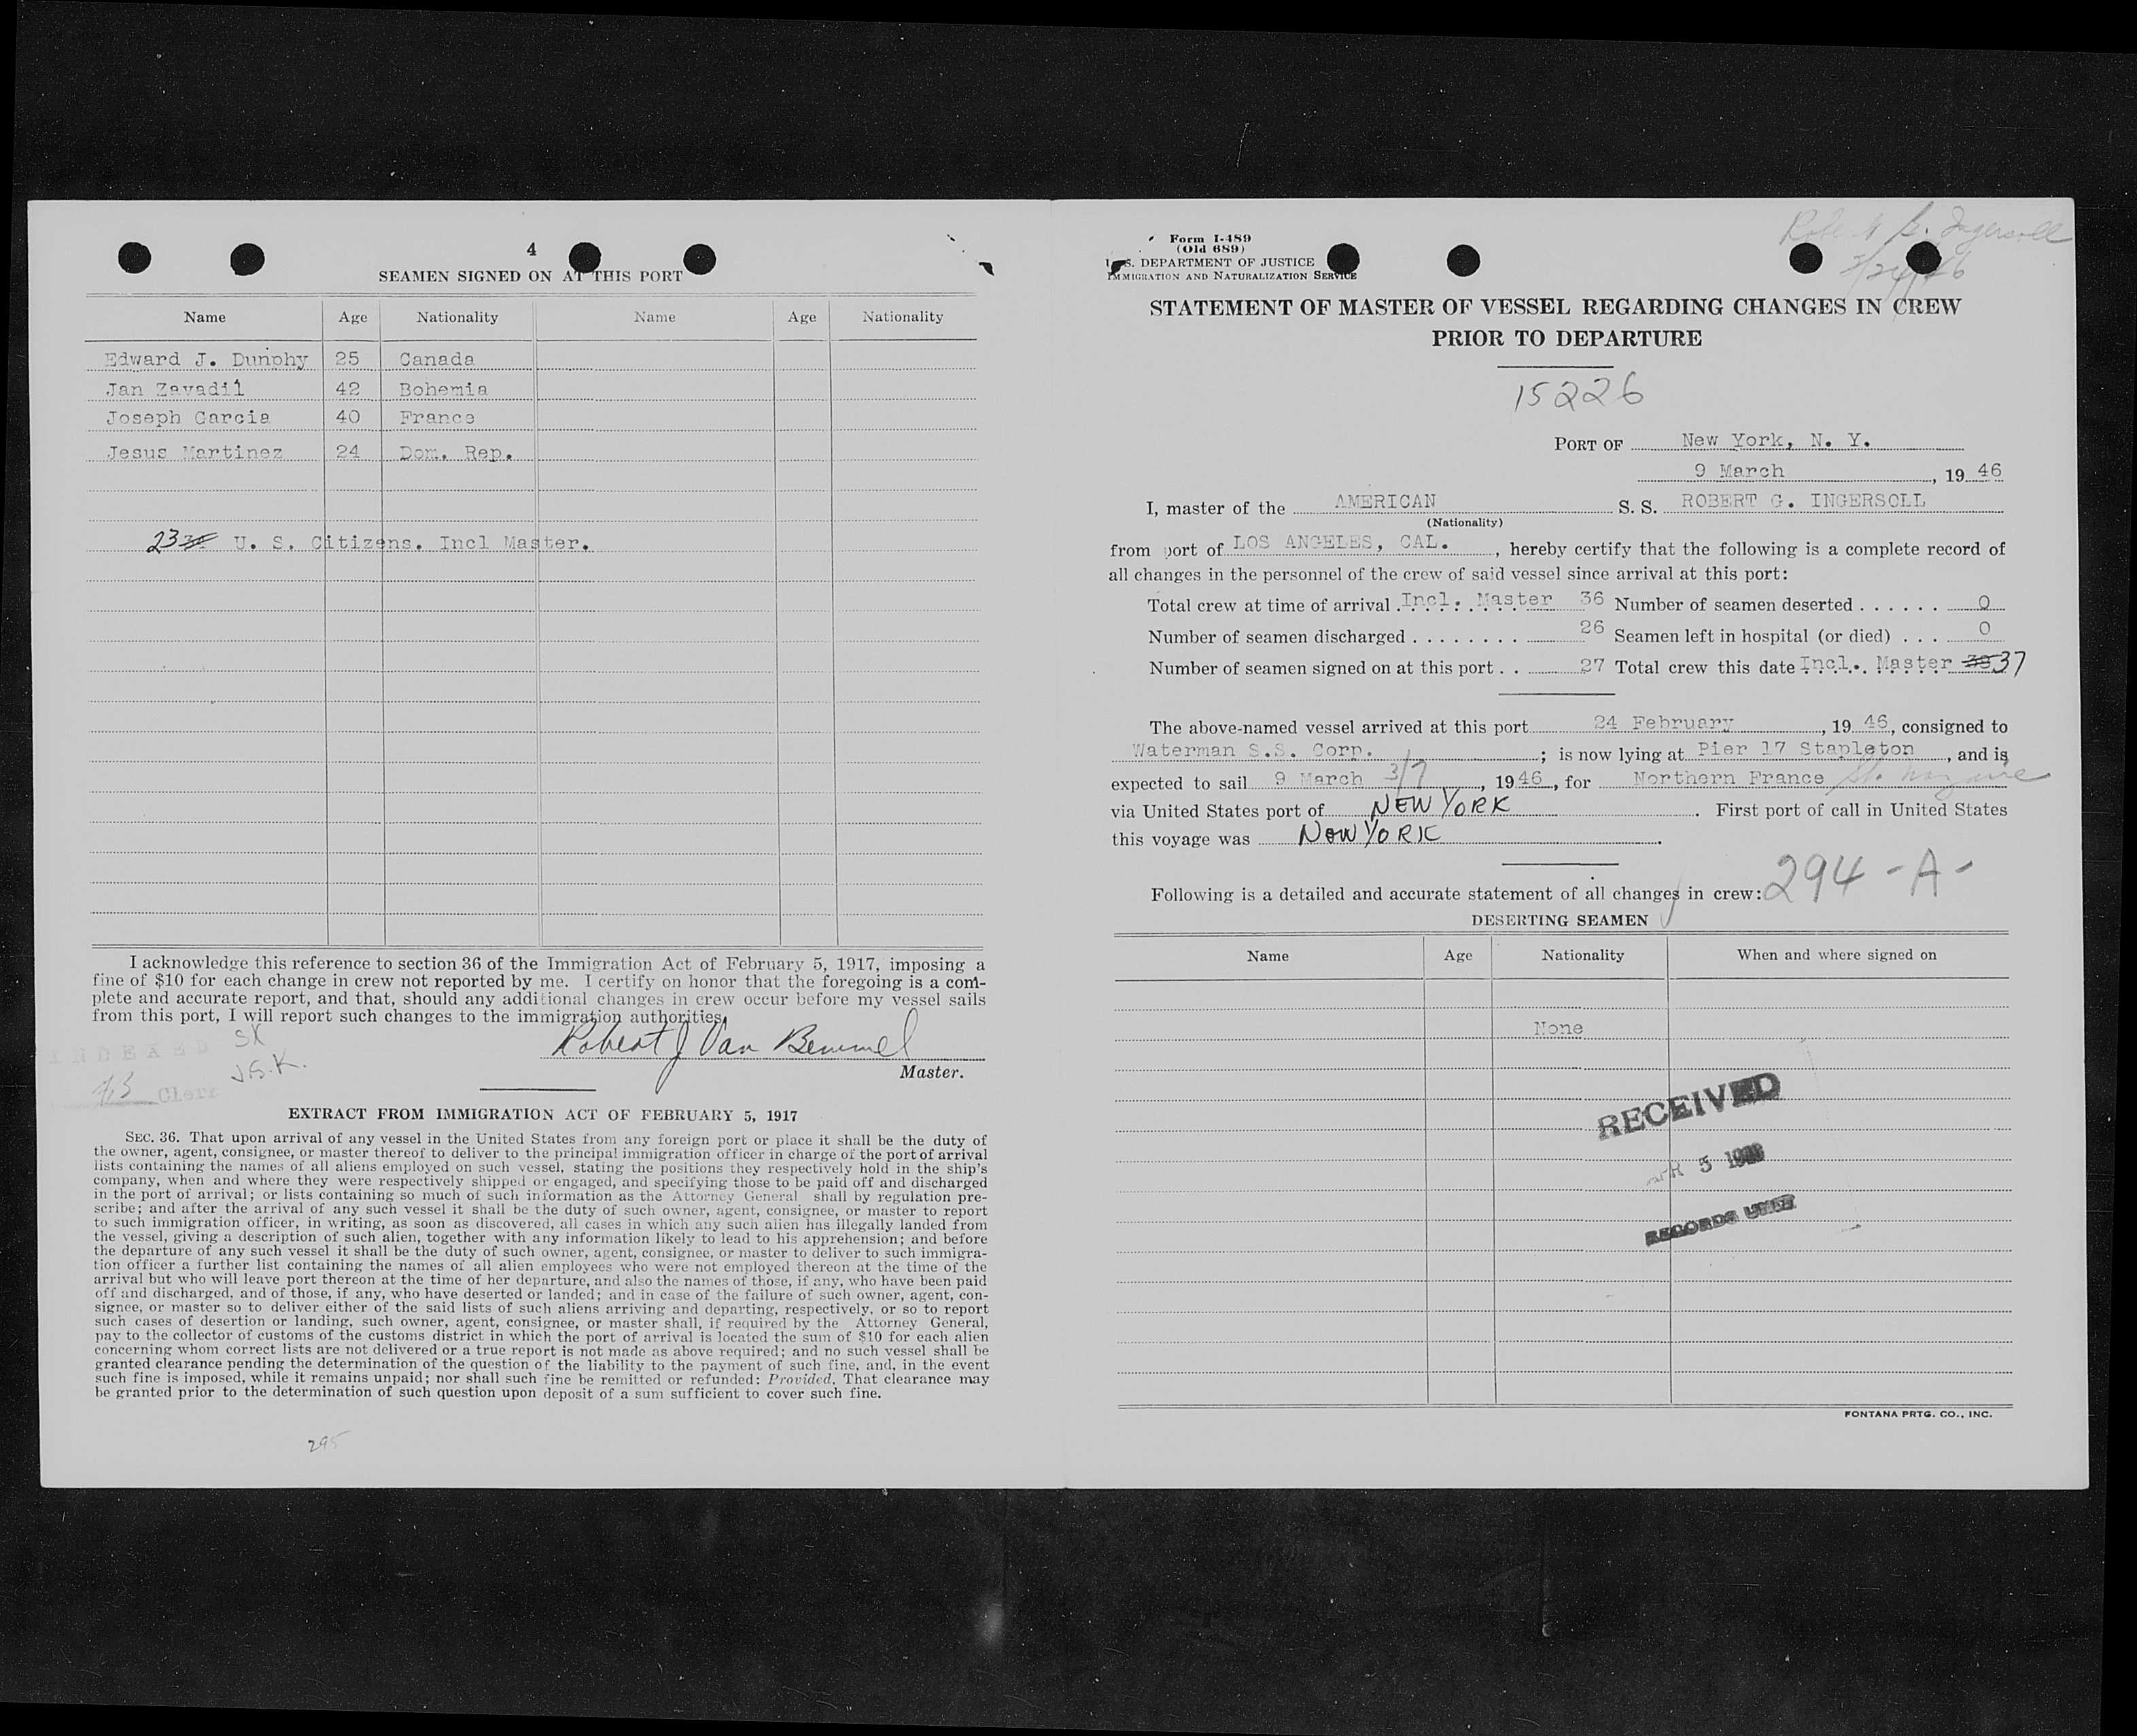 4
SEAMEN SIGNED ON AT THIS PORT
Name Age Nationality Name Age Nationality
Edward J. Dunphy 25 Canada
Jan Zavadil 42 Bohemia
Joseph Garcia 40 France
Jesus Martinez 24 Dom. Rep.
23 U. S. Citizens. Incl Master.
I acknowledge this reference to section 36 of the Immigration Act of February 5, 1917, imposing a
fine of $10 for each change in crew not reported by me. I certify on honor that the foregoing is a com-
plete and accurate report, and that, should any additional changes in crew occur before my vessel sails
from this port, I will report such changes to the immigration authorities.
SK
Robert J Van Bemmel
INDEXED
J.S.K.
Master.
Clerk
EXTRACT FROM IMMIGRATION ACT OF FEBRUARY 5, 1917
SEC. 36. That upon arrival of any vessel in the United States from any foreign port or place it shall be the duty of
the owner, agent, consignee, or master thereof to deliver to the principal immigration officer in charge of the port of arrival
lists containing the names of all aliens employed on such vessel, stating the positions they respectively hold in the ship's
company, when and where they were respectively shipped or engaged, and specifying those to be paid off and discharged
in the port of arrival; or lists containing so much of such information as the Attorney General shall by regulation pre-
scribe; and after the arrival of any such vessel it shall be the duty of such owner, agent, consignee, or master to report
to such immigration officer, in writing, as soon as discovered, all cases in which any such alien has illegally landed from
the vessel, giving a description of such alien, together with any information likely to lead to his apprehension; and before
the departure of any such vessel it shall be the duty of such owner, agent, consignee, or master to deliver to such immigra-
tion officer a further list containing the names of all alien employees who were not employed thereon at the time of the
arrival but who will leave port thereon at the time of her departure, and also the names of those, if any, who have been paid
off and discharged, and of those, if any, who have deserted or landed; and in case of the failure of such owner, agent, con-
signee, or master so to deliver either of the said lists of such aliens arriving and departing, respectively, or so to report
such cases of desertion or landing, such owner, agent, consignee, or master shall, if required by the Attorney General,
pay to the collector of customs of the customs district in which the port of arrival is located the sum of $10 for each alien
concerning whom correct lists are not delivered or a true report is not made as above required; and no such vessel shall be
granted clearance pending the determination of the question of the liability to the payment of such fine, and, in the event
such fine is imposed, while it remains unpaid; nor shall such fine be remitted or refunded: Provided, That clearance may
be granted prior to the determination of such question upon deposit of a sum sufficient to cover such fine.
295
Form I-489
(Old 689)
U. S. DEPARTMENT OF JUSTICE
IMMIGRATION AND NATURALIZATION SERVICE
Robert G. Ingersoll
3/24/46
STATEMENT OF MASTER OF VESSEL REGARDING CHANGES IN CREW
PRIOR TO DEPARTURE
15226
PORT OF New York, N. Y.
9 March, 19 46
I, master of the AMERICAN S. S. ROBERT G. INGERSOLL
(Nationality)
from port of LOS ANGELES, CAL., hereby certify that the following is a complete record of
all changes in the personnel of the crew of said vessel since arrival at this port:
Total crew at time of arrival Incl. Master 36 Number of seamen deserted . . . . . . 0
Number of seamen discharged . . . . . . . . 26 Seamen left in hospital (or died) . . . 0
Number of seamen signed on at this port . . 27 Total crew this date Incl. Master 37
The above-named vessel arrived at this port 24 February, 19 46, consigned to
Waterman S.S. Corp.; is now lying at Pier 17 Stapleton, and is
expected to sail 9 March 3/9, 19 46, for Northern France St. Nazaire
via United States port of NEW YORK. First port of call in United States
this voyage was NEW YORK.
Following is a detailed and accurate statement of all changes in crew: 294 - A -
DESERTING SEAMEN
Name Age Nationality When and where signed on
None
RECEIVED
APR 5 1946
RECORDS UNIT
FONTANA PRTG. CO., INC.